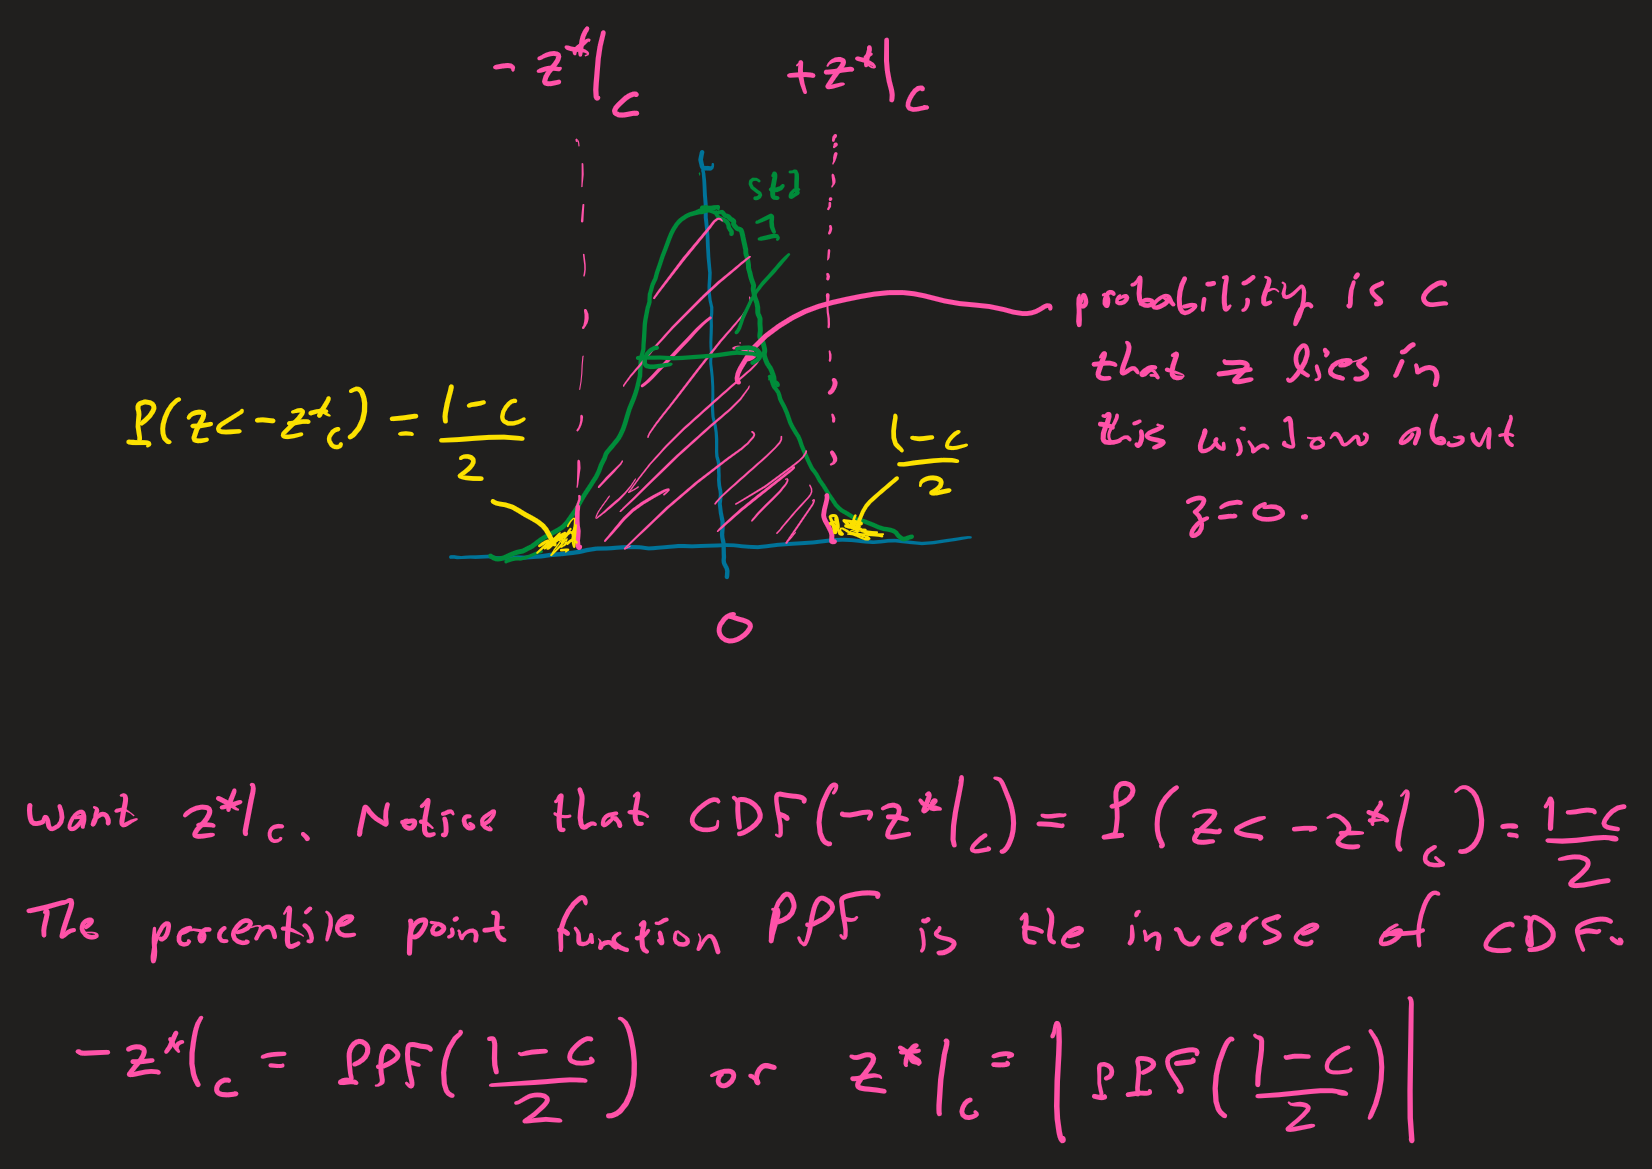 -z*|c +z*|c
std
1
probability is c
that z lies in
this window about
z=0.
P(z<-z*c) = (1-c)/2
(1-c)/2
0
want z*|c. Notice that CDF(-z*|c) = P(z< -z*|c) = (1-c)/2
The percentile point function PPF is the inverse of CDF.
-z*|c = PPF((1-c)/2) or z*|c = |PPF((1-c)/2)|